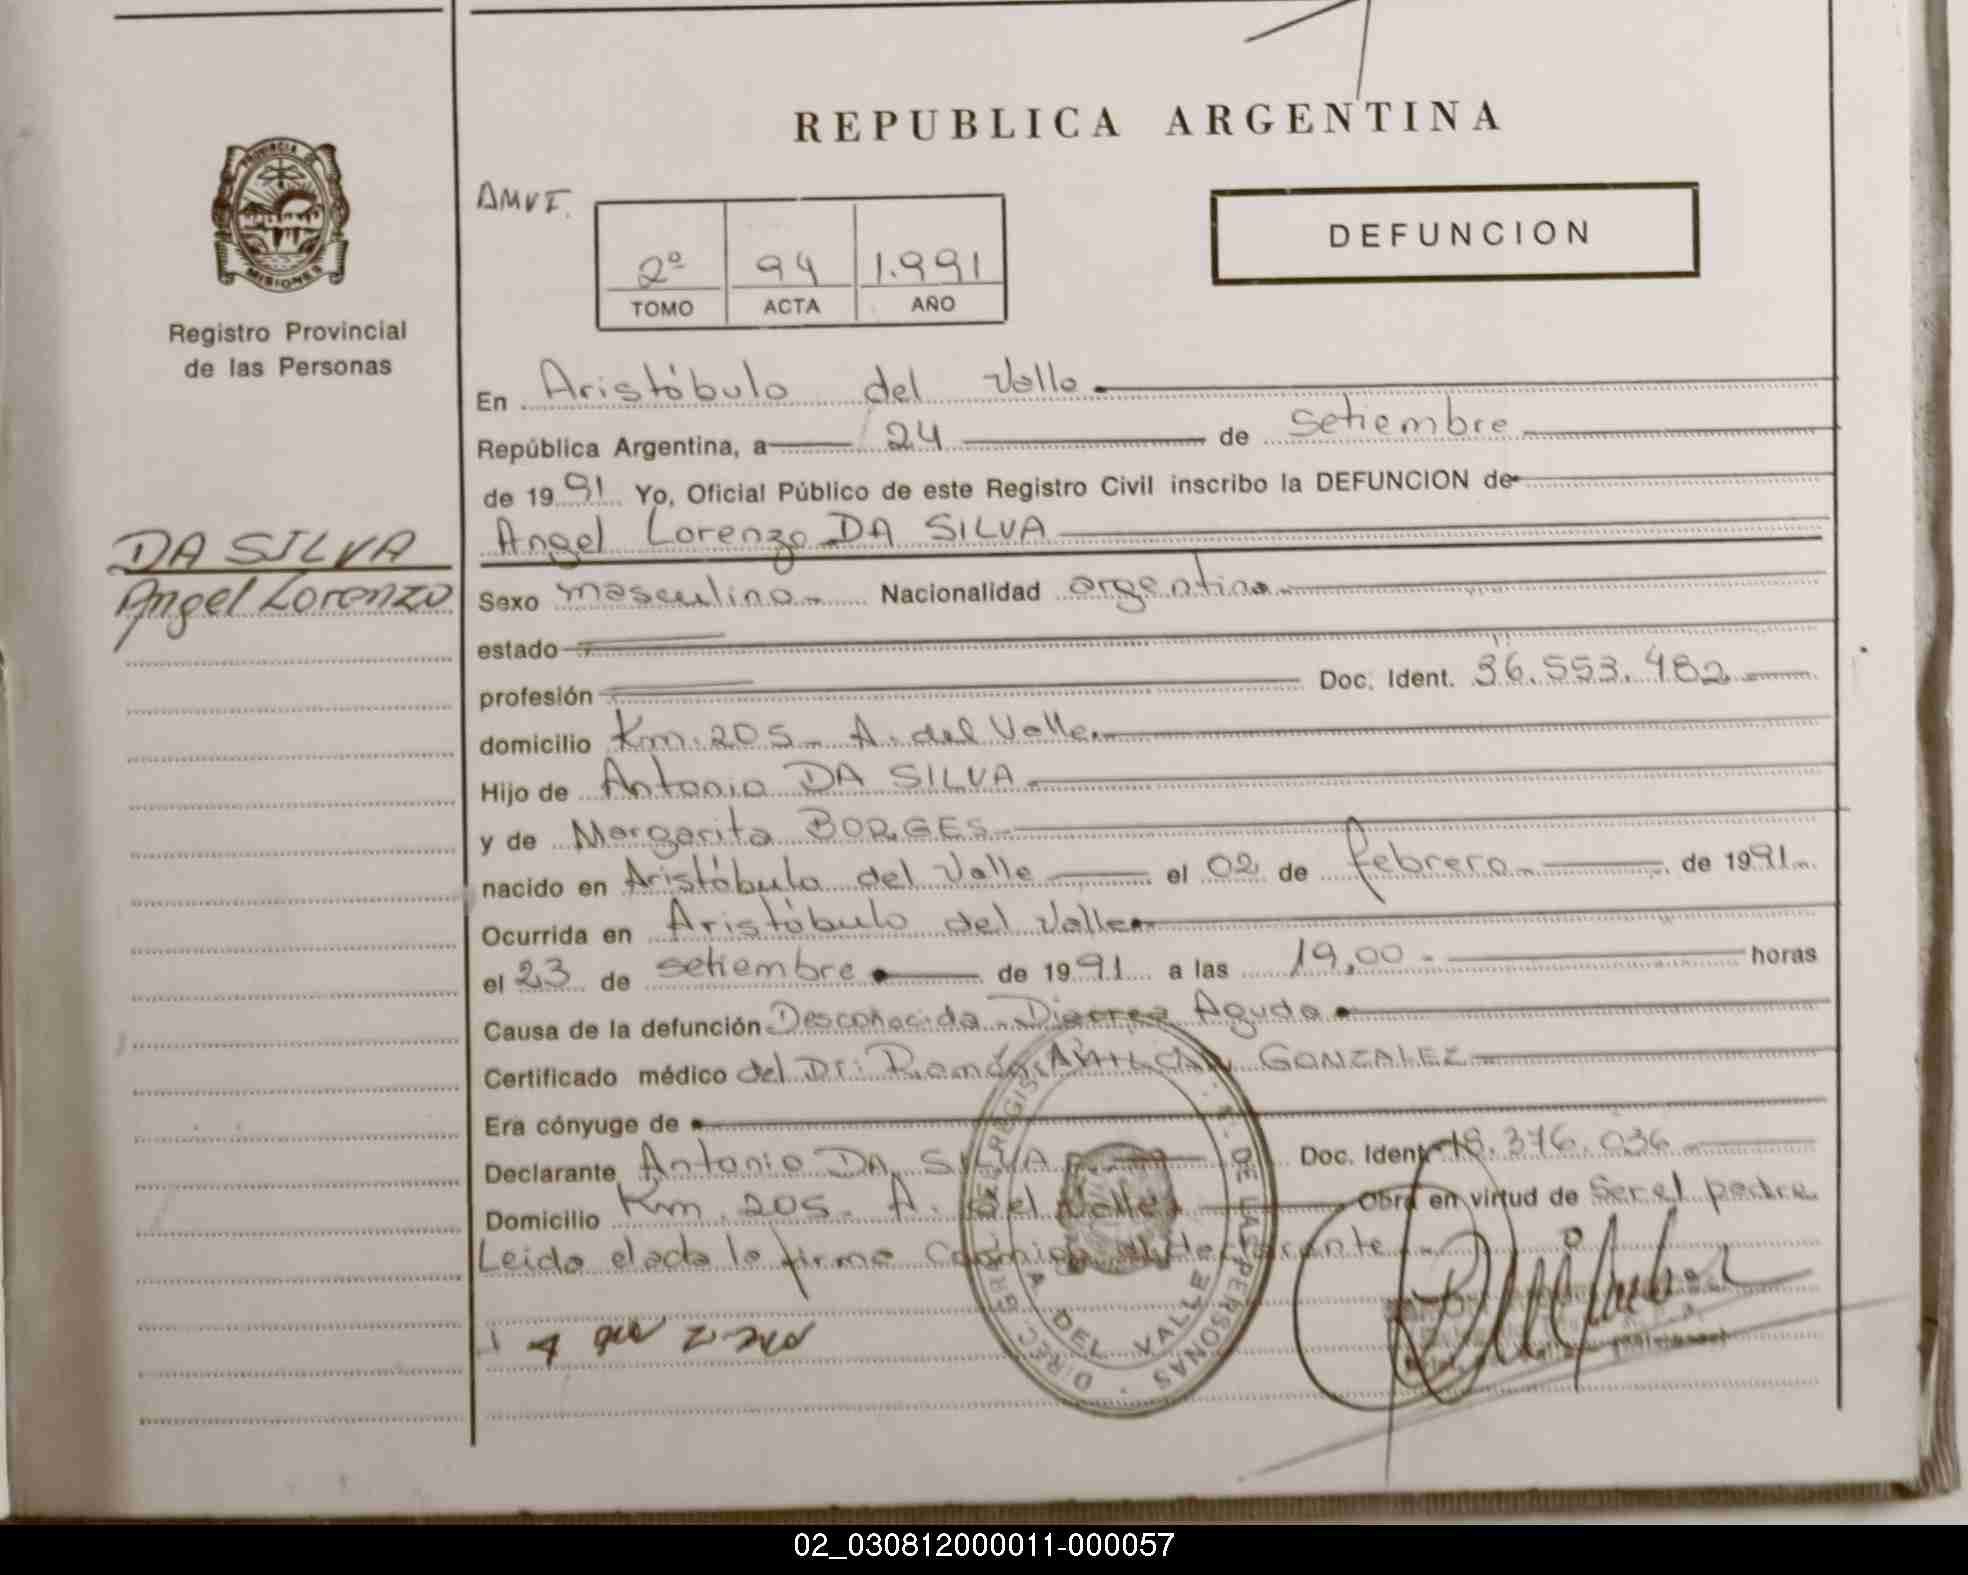 REPUBLICA ARGENTINA
PROVINCIA DE
MISIONES
Registro Provincial
de las Personas
2º 94 1.991
TOMO ACTA AÑO
DEFUNCION
DA SILVA
Angel Lorenzo
En Aristóbulo del Valle
República Argentina, a 24 de setiembre
de 1991 Yo, Oficial Público de este Registro Civil inscribo la DEFUNCION de
Angel Lorenzo DA SILVA
Sexo masculino Nacionalidad argentina
estado
profesión Doc. Ident. 36.553.482
domicilio Km. 205 - A. del Valle
Hijo de Antonio DA SILVA
y de Margarita BORGES
nacido en Aristóbulo del Valle el 02 de febrero de 1991
Ocurrida en Aristóbulo del Valle
el 23 de setiembre de 1991 a las 19,00 horas
Causa de la defunción Desconocida Diarrea Aguda
Certificado médico del Dr: Ramón AMILCAR GONZALEZ
Era cónyuge de
Declarante Antonio DA SILVA Doc. Ident. 18.376.036
Domicilio Km. 205 - A. del Valle Obra en virtud de ser el padre
Leida el acta la firma conmigo el declarante
DE LAS PERSONAS
DEL VALLE
02_030812000011-000057